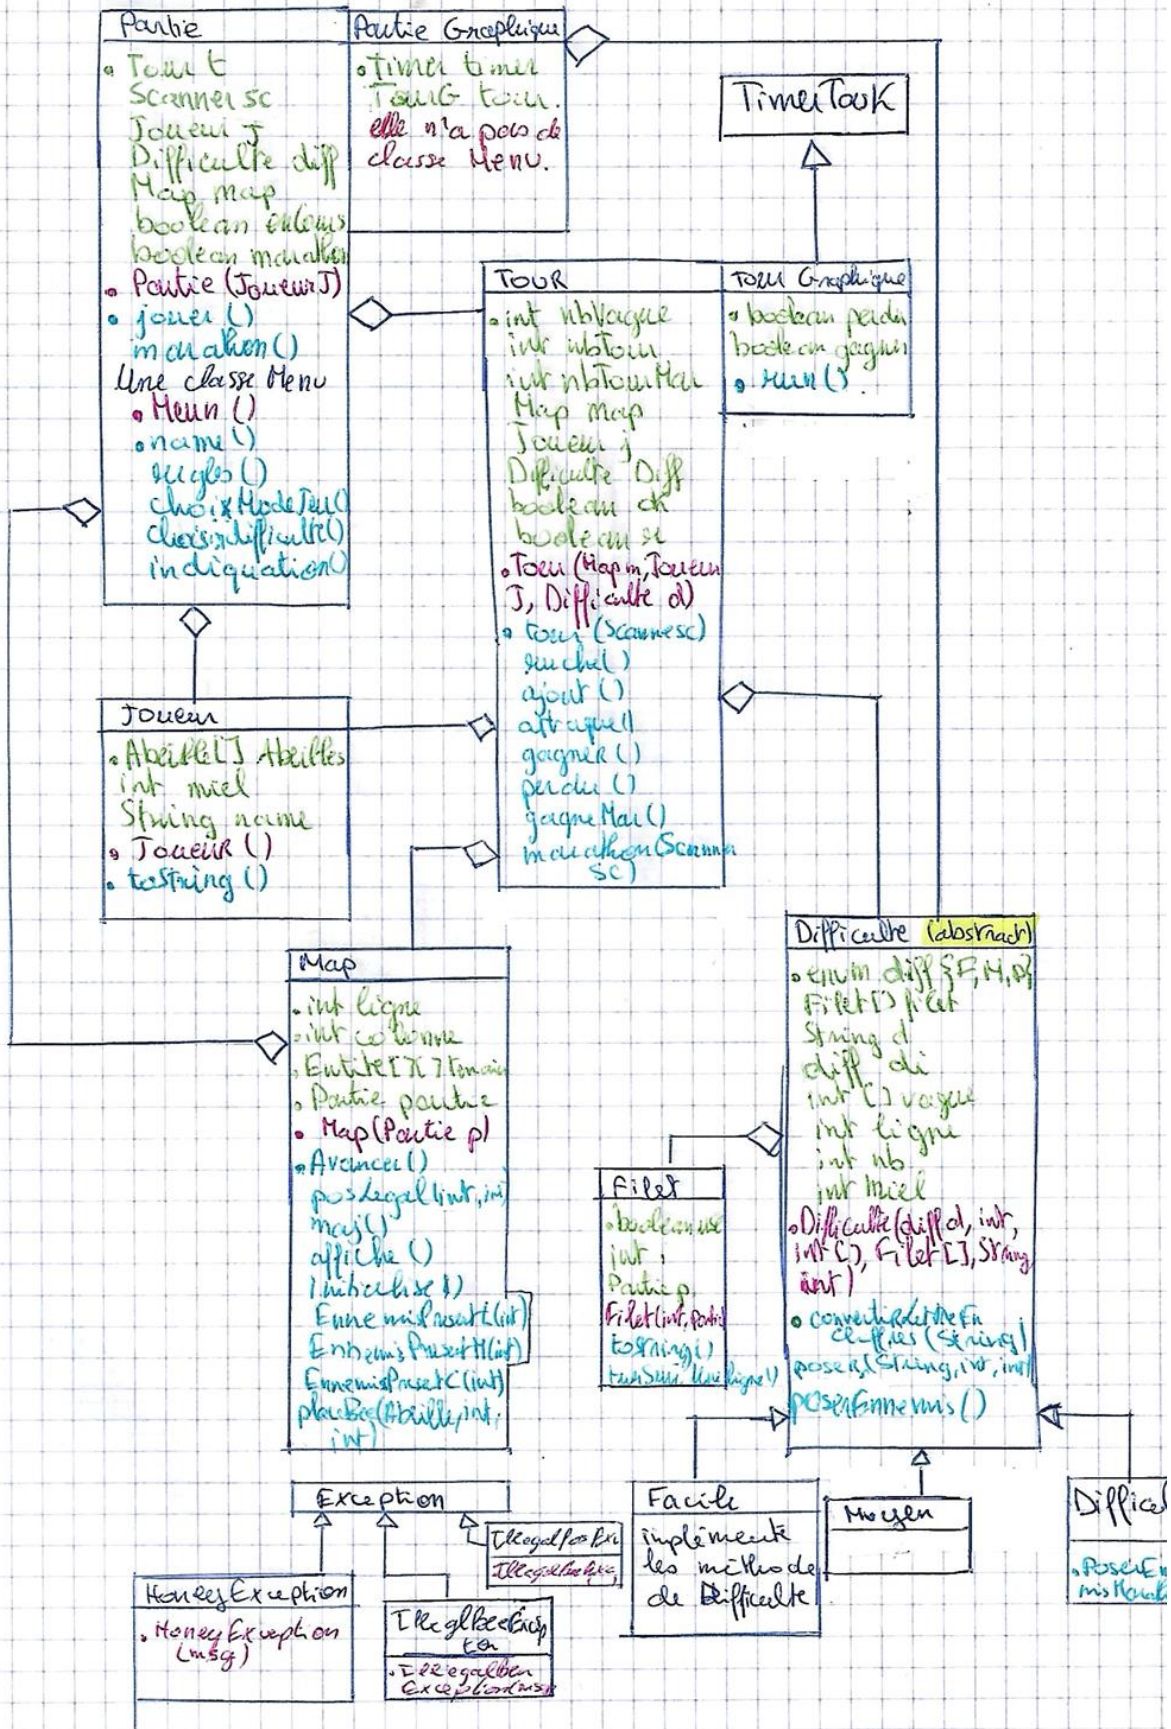 Partie
Tour t
Scanner sc
Joueur J
Difficulte diff
Map map
boolean enCours
boolean marathon
Partie (Joueur J)
jouer ()
marathon ()
Une classe Menu
Menu ()
name ()
regles ()
choixModeJeu()
choisirdifficulté()
indiquation()
Partie Graphique
Timer timer
TourG tour.
elle n'a pas de
classe Menu.
TimerTask
TOUR
int nbVague
int nbTour
int nbTourMar
Map map
Joueur j
Difficulte Diff
boolean ok
boolean
Tour (Map m, Joueur
J, Difficulte d)
tour (Scanner sc)
ruche()
ajout ()
attaque()
gagner ()
perdu ()
gagneMar()
marathon (Scanner
sc)
Tour Graphique
boolean perdu
boolean gagner
run ()
Joueur
Abeille[] Abeilles
int miel
String name
Joueur ()
toString ()
Map
int ligne
int colonne
Entite[][] terrain
Partie partie
Map (Partie p)
Avancer()
posLegal (int, int)
maj()
affiche ()
initialise ()
EnnemisPresentL(int)
EnnemisPresentM(int)
EnnemisPresentC(int)
placeBee(Abeille, int,
int)
Difficulte (abstract)
enum diff {F, M, D}
Filet[] filet
String d
diff di
int [] vague
int ligne
int nb
int Miel
Difficulte (diff d, int,
int [], Filet [], String
int)
convertirLettreEn
Chiffres (String)
poser (String, int, int)
poserEnnemis ()
Filet
boolean use
int
Partie p
Filet (int, Partie
toString()
Exception
HoneyException
HoneyException
(msg)
IllegalBeeExcep
tion
IllegalBee
Exception(msg
IllegalPosExc
Facile
implémente
les méthode
de Difficulte
Moyen
Difficil
PoserEn